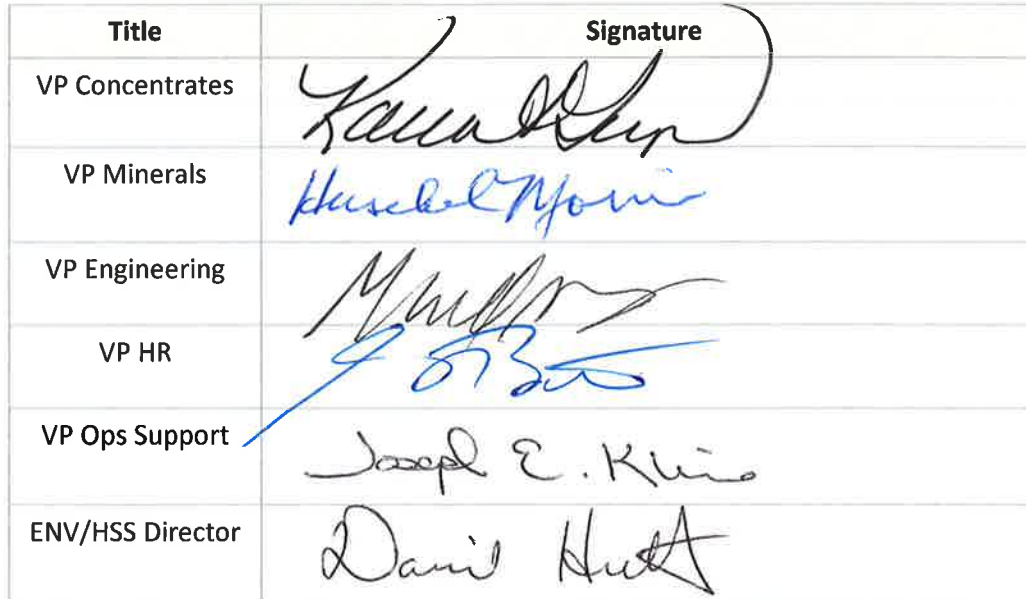 Title Signature
VP Concentrates
VP Minerals Herschel Morris
VP Engineering
VP HR
VP Ops Support Joseph E.
ENV/HSS Director David Hutt